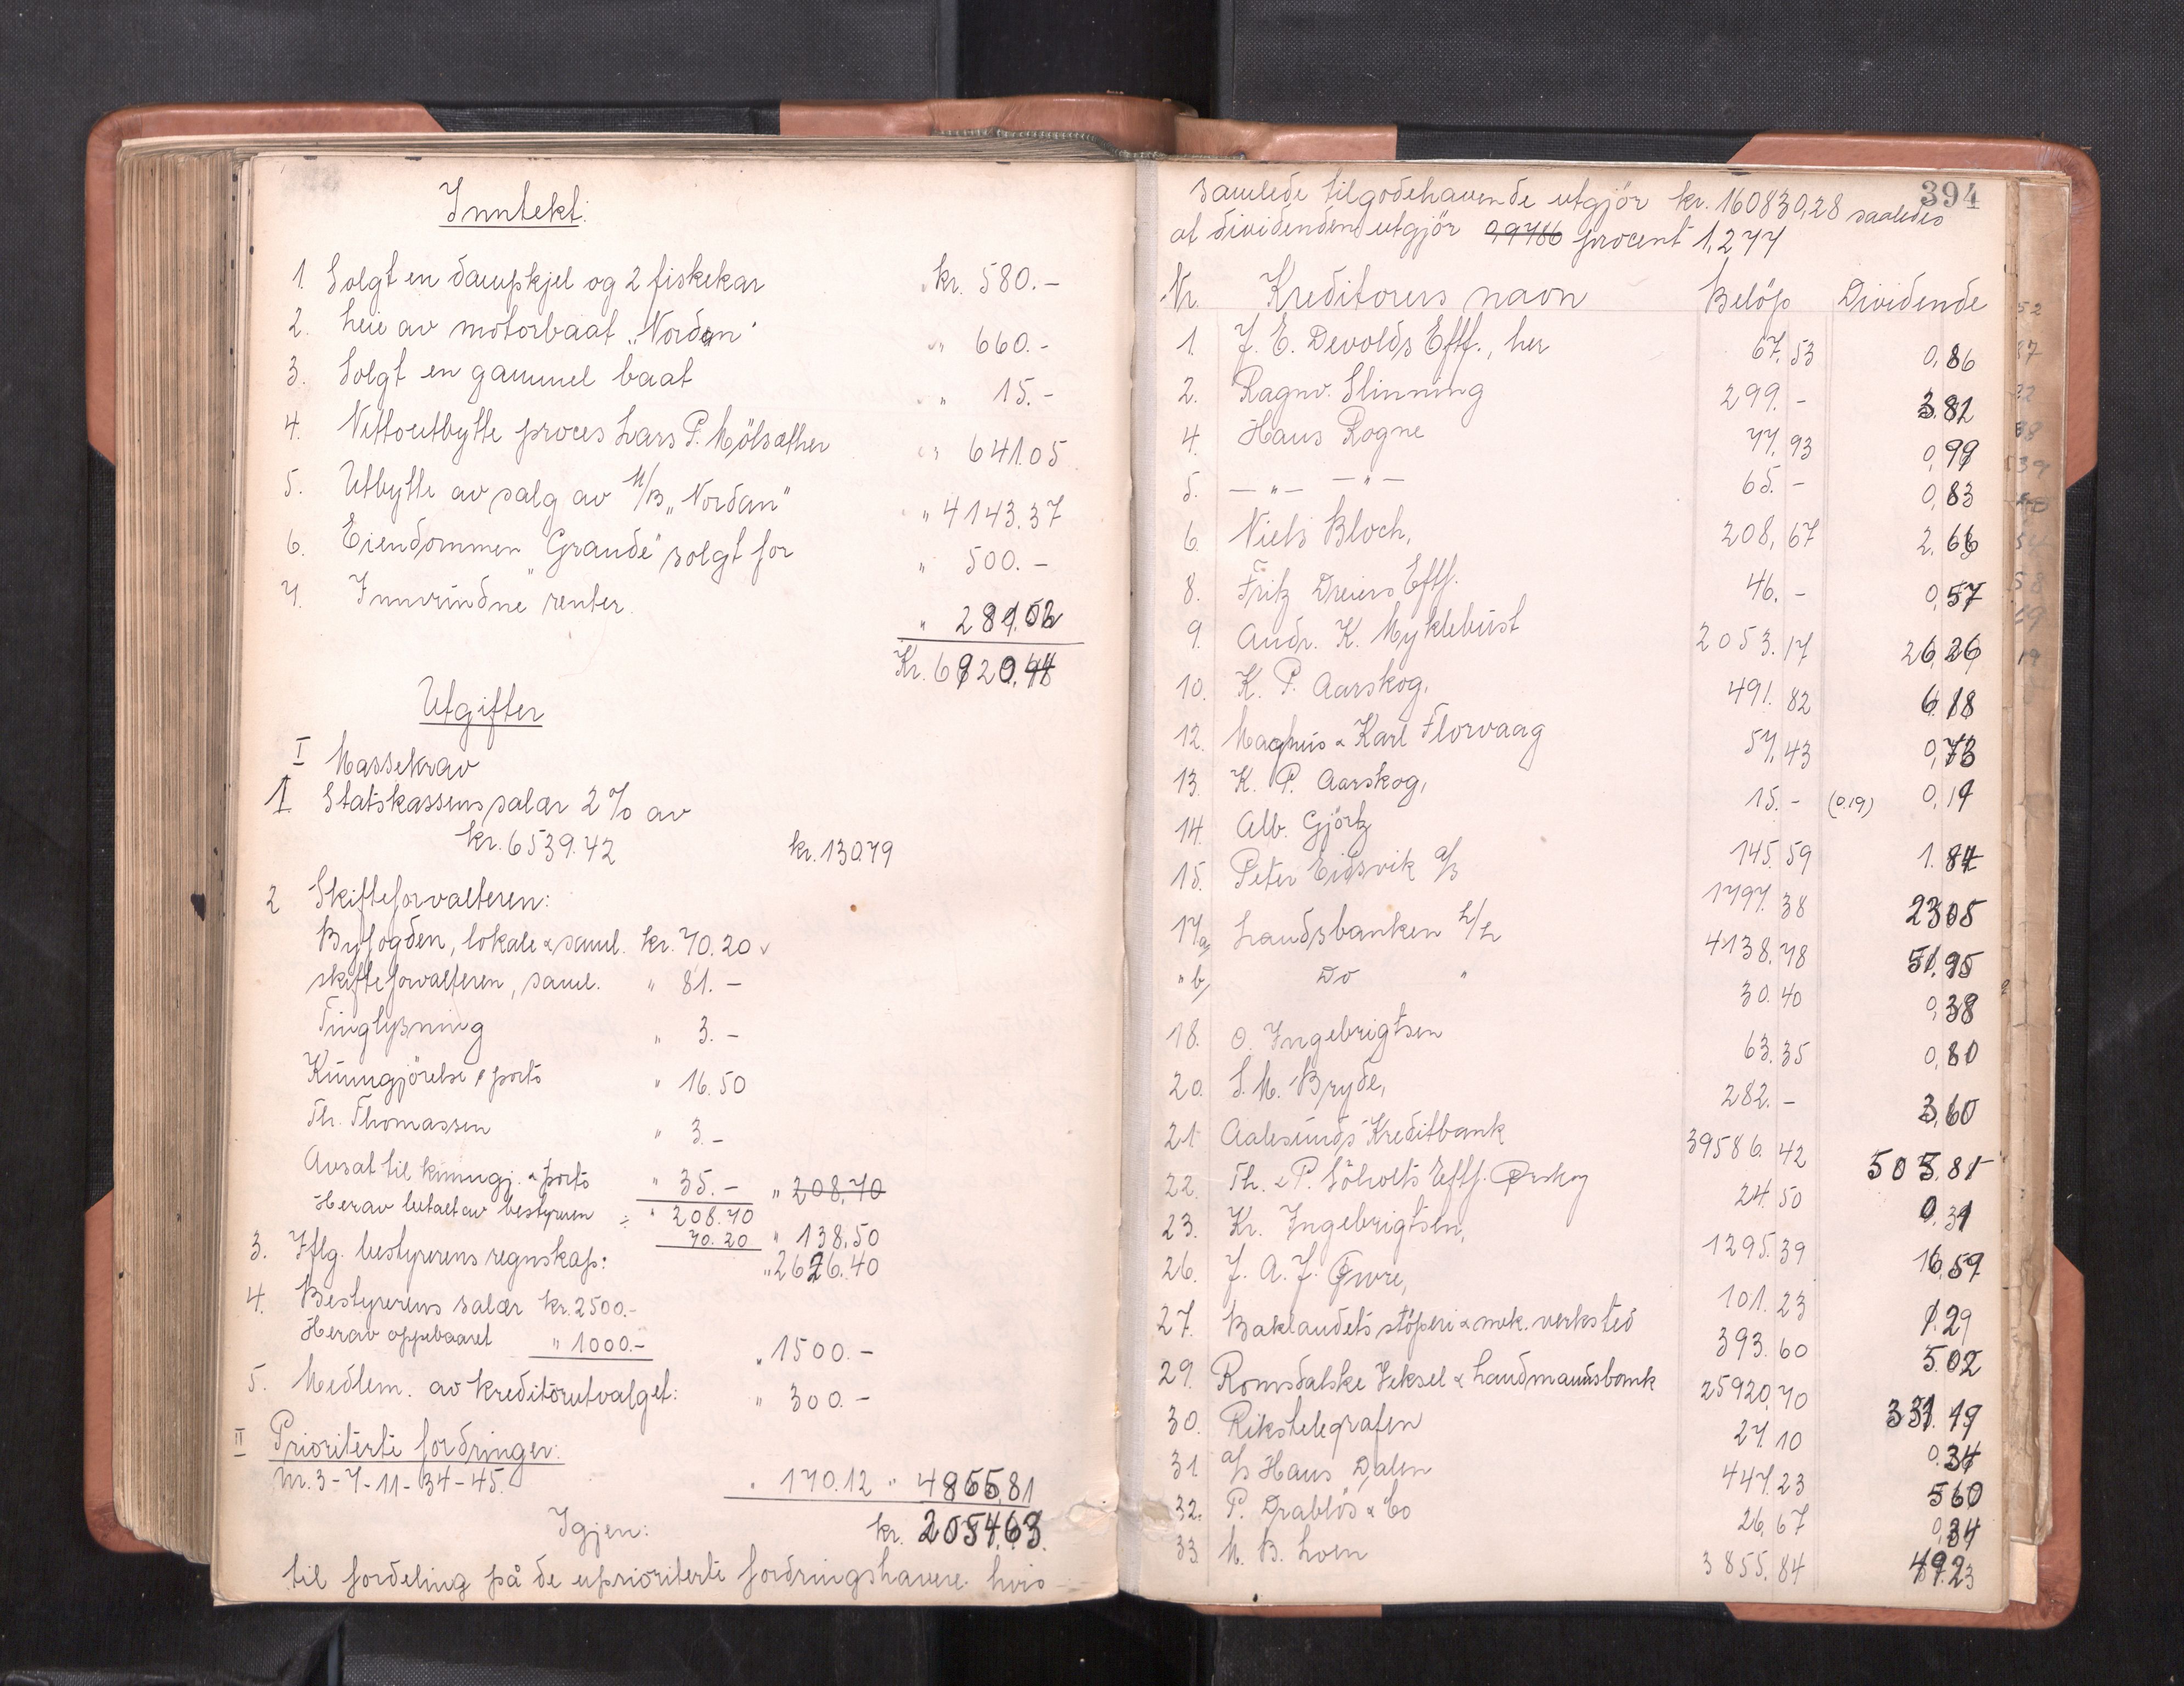 Inntekt:
1. Solgt en dampkjel og 2 fiskekar kr. 580.-
2. Leie av motorbaat "Nordan" " 660.-
3. Solgt en gammel baat " 15.-
4. Nettoutbytte proces Lars P. Mölsæther " 641.05
5. Utbytte av salg av M/B "Nordan" " 4143.37
6. Eiendommen "Grande" solgt for " 500.-
7. Innvundne renter.
Kr. 6920.44
Utgifter
I Massekrav
1 Statskassens salær 2% av
kr. 6539.42 kr. 130.79
2 Skifteforvalteren:
Byfogden, lokale & saml. kr. 70.20
skifteforvalteren, saml. " 81.-
Tinglysning " 3.-
Kunngjörelse & porto " 16.50
Th. Thomassen " 3.-
Avsat til kunngj. & porto " 35.- " 208.70
Herav betalt av bestyreren ÷ " 208.70
70.20 " 138.50
3. Iflg. bestyrerens regnskap: " 2626.40
4. Bestyrerens salær kr. 2500.-
Herav oppebaaret " 1000.- " 1500.-
5. Medlem. av kreditorutvalget: " 300.-
II Prioriterte fordringer:
Nr. 3-7-11-34-45. " 170.12 " 4865,81
Igjen: kr. 2054,63.
til fordeling på de uprioriterte fordringshavere hvis
394
samlede tilgodehavende utgjör kr. 160830,28 saaledes
at dividenden utgjör 0,9786 procent 1,277
Nr. Kreditorers navn Belöp Dividende
1. J. E. Devolds Eftf., her 67,53 0,86
2. Ragnv. Slinning 299.- 3.82
4. Hans Rogne 77,93 0,99
5. -"- -"- 65.- 0,83
6. Niels Bloch, 208,67 2,66
8. Fritz Dreiers Eftf. 46.- 0,57
9. Andr. K. Myklebust 2053.17 26,26
10. K. P. Aarskog, 491.82 6.18
12. Magnus & Karl Florvaag 57,43 0,73
13. K. P. Aarskog, 15.- (0.19) 0,19
14. Alb. Gjörtz 145.59 1.84
15. Peter Eidsvik A/S 1797.38 23.05
17a/ Landsbanken L/L 4138.78 51,95
" b/ Do " 30.40 0,38
18. O. Ingebrigtsen 63.35 0,80
20. S. M. Bryde, 282.- 3,60
21. Aalesunds Kreditbank 39586.42 505.81
22. Th. & P. Söholts Eftf. Ørskog 24.50 0.31
23. Kr. Ingebrigtsen, 1295.39 16,59
26. J. A. J. Øwre, 101.23 1.29
27. Baklandets stöperi & mek. verksted 393.60 5.02
29. Romsdalske Veksel & Landmannsbank 25920,70 331.19
30. Rikstelegrafen 27.10 0.34
31. A/S Hans Dalen 447.23 5.60
32. P. Drablös & Co 26,67 0,34
33. M. B. Loen 3855.84 49.23